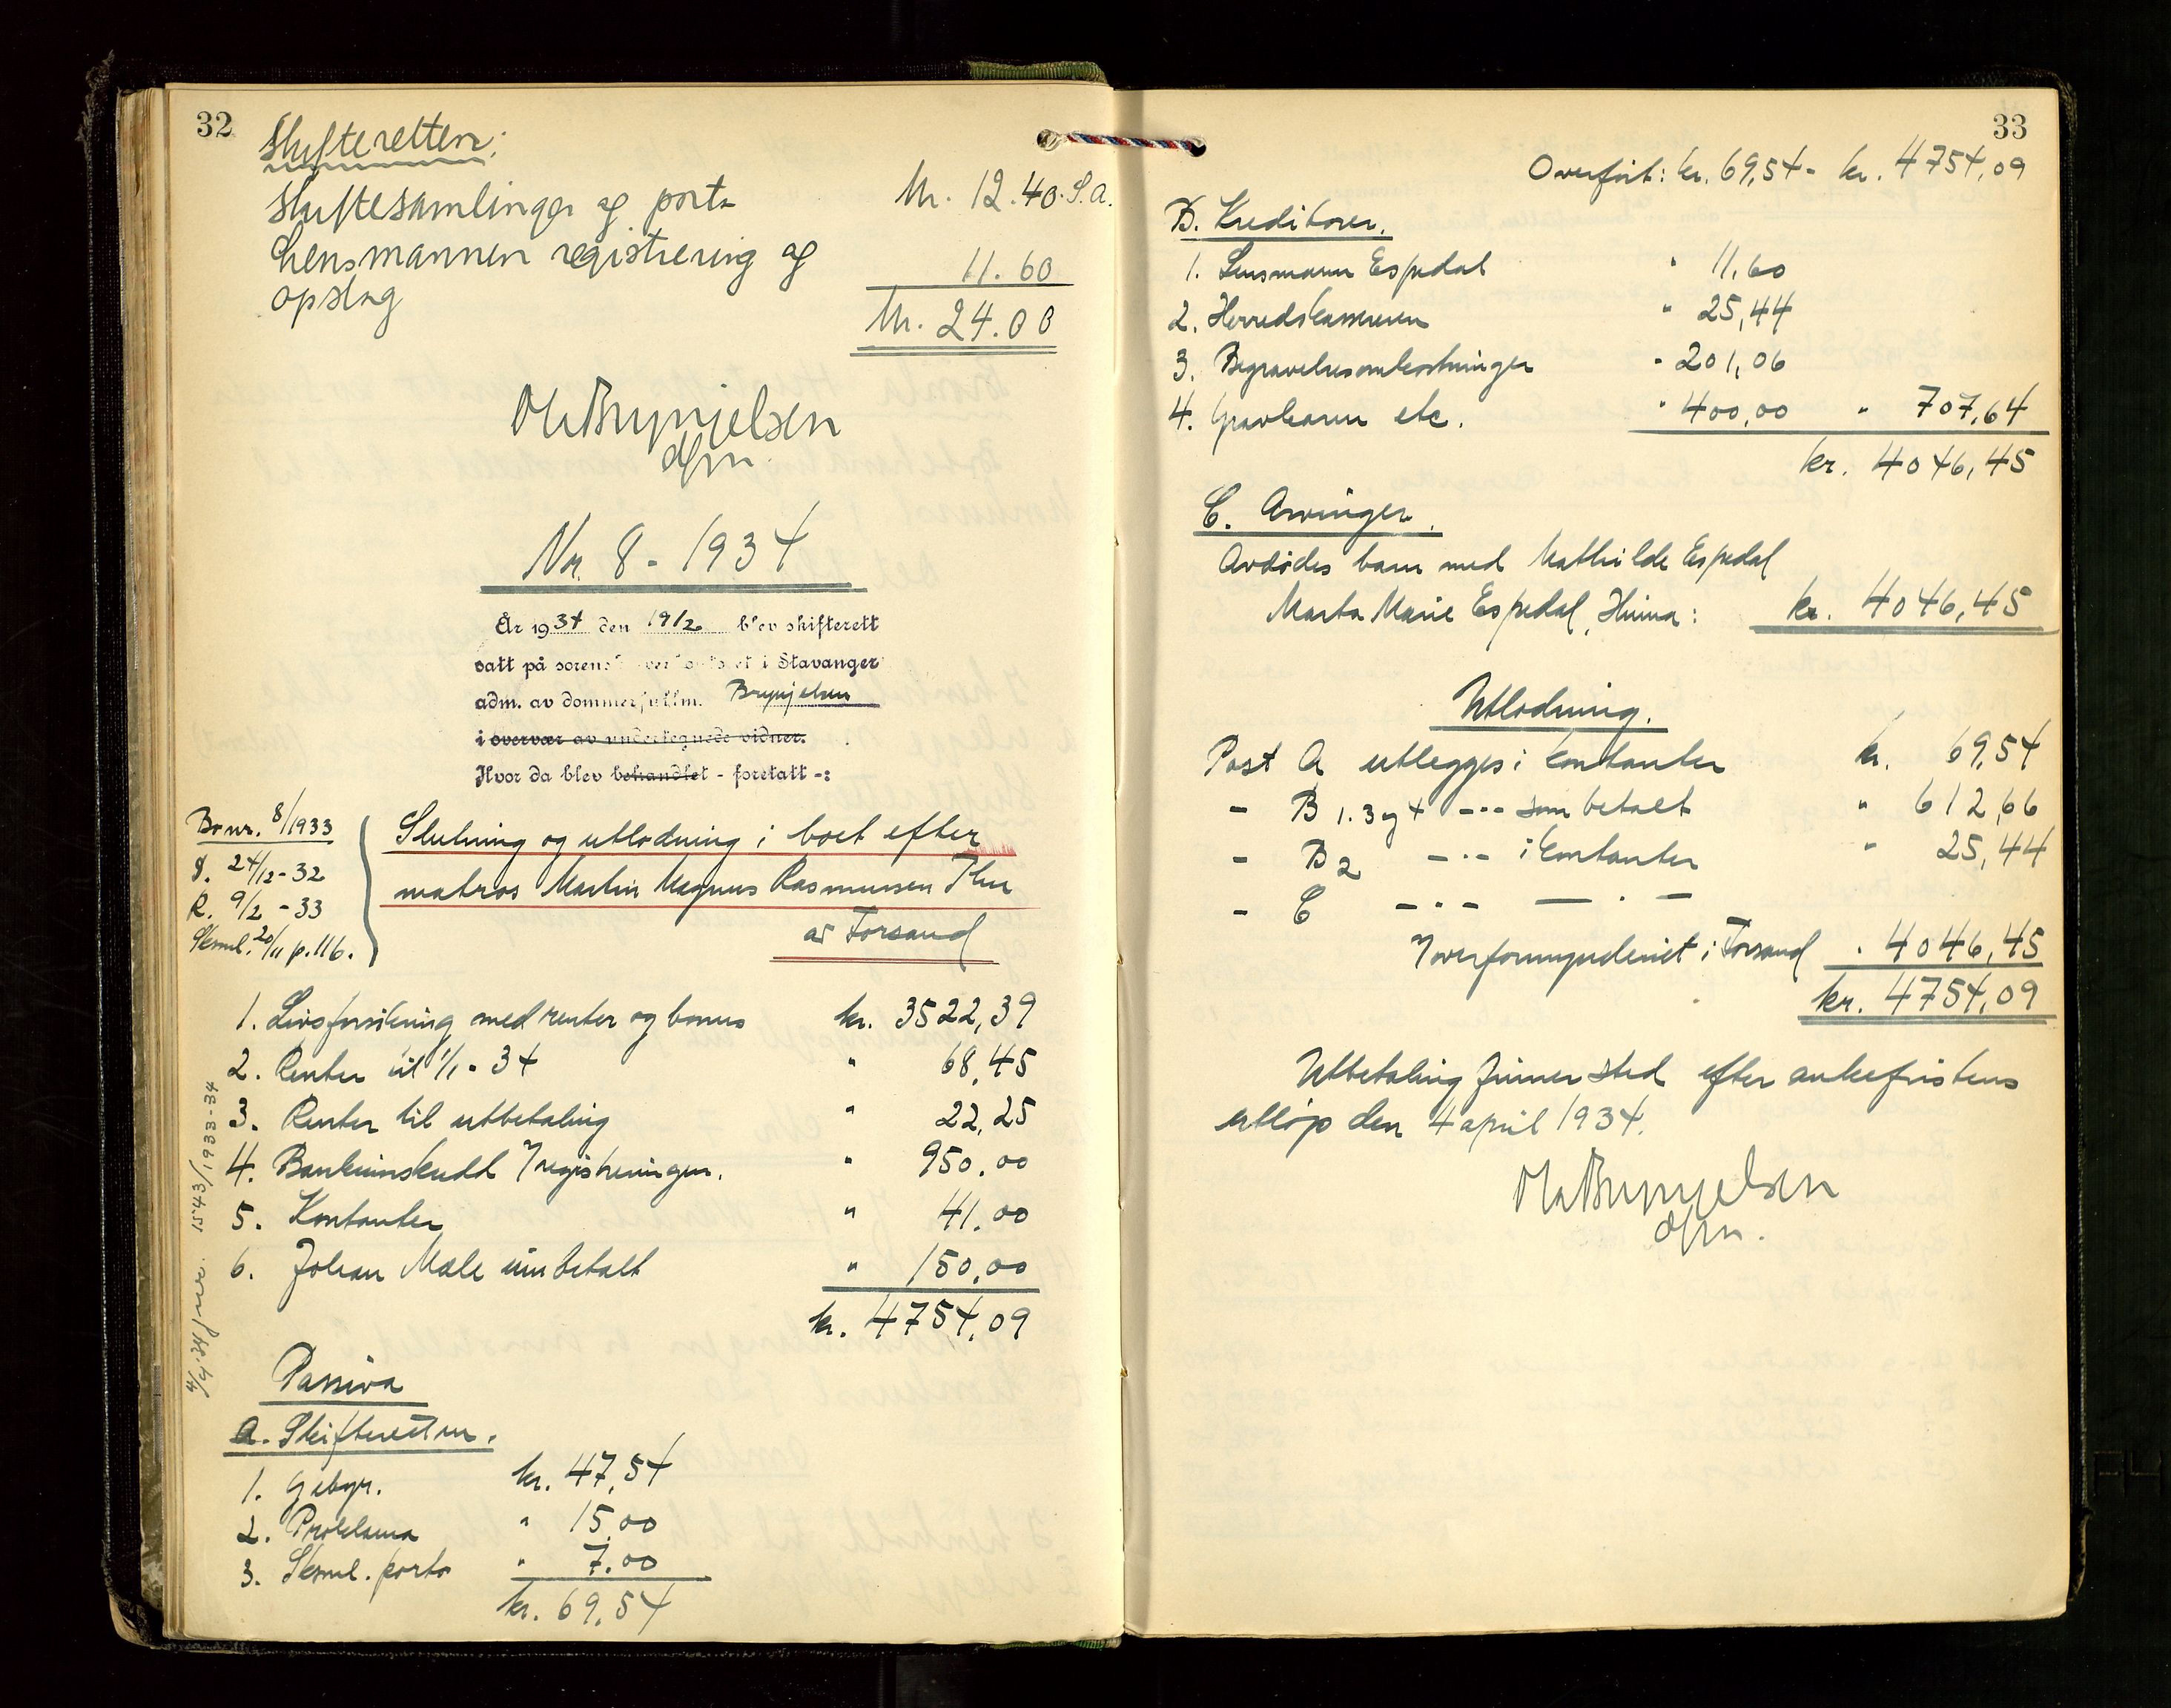 32
Skifteretten:
Skiftesamlinger og porto Kr. 12.40. S.a.
Lensmannen registrering og
opslag 11.60
Kr. 24.00
Ola Brynjelsen
dfm.
Nr. 8 - 1934
År 1934 den 19/2 blev skifterett
satt på sorenskriverkontoret i Stavanger
adm. av dommerfullm. Brynjelsen
i overvær av undertegnede vidner.
Hvor da blev behandlet - foretatt -:
Bo nr. 8/1933
d. 24/12-32
R. 9/2 - 33
Sksml. 20/11 p. 116.
Slutning og utlodning i boet efter
matros Martin Magnus Rasmussen Thu
av Forsand
1. Livsforsikring med renter og bonus kr. 3522,39
2. Renter til 1/1 - 34 " 68,45
3. Renter til utbetaling " 22,25
4. Bankinnskudd i registreringen. " 950.00
5. Kontanter " 41.00
6. Johan Mæle innbetalt " 150.00
kr. 4754,09
4/4.34 jnr. 1543/1933-34
Passiva
A. Skifteretten.
1. Gebyr. kr. 47,54
2. Proklama " 15.00
3. Sksml. porto " 7.00
kr. 69,54
33
Overført: kr. 69,54 - kr. 4754,09
B. Kreditorer.
1. Lensmann Espedal " 11,60
2. Herredskasseren " 25,44
3. Begravelsesomkostninger " 201,06
4. Gravhavn etc. " 400,00 " 707,64
kr. 4046,45
C. Arvinger.
Avdødes barn med Mathilde Espedal
Marta Marie Espedal, : kr. 4046,45
Utlodning.
Post A utlegges i kontanter kr. 69,54
- B 1. 3 og 4 -"- som betalt " 612,66
- B 2 -"- i kontanter " 25,44
- C -"- — " —
I overformynderiet i Forsand " 4046,45
kr. 4754,09
Utbetaling finner sted efter ankefristens
utløp den 4 april 1934.
Ola Brynjelsen
dfm.